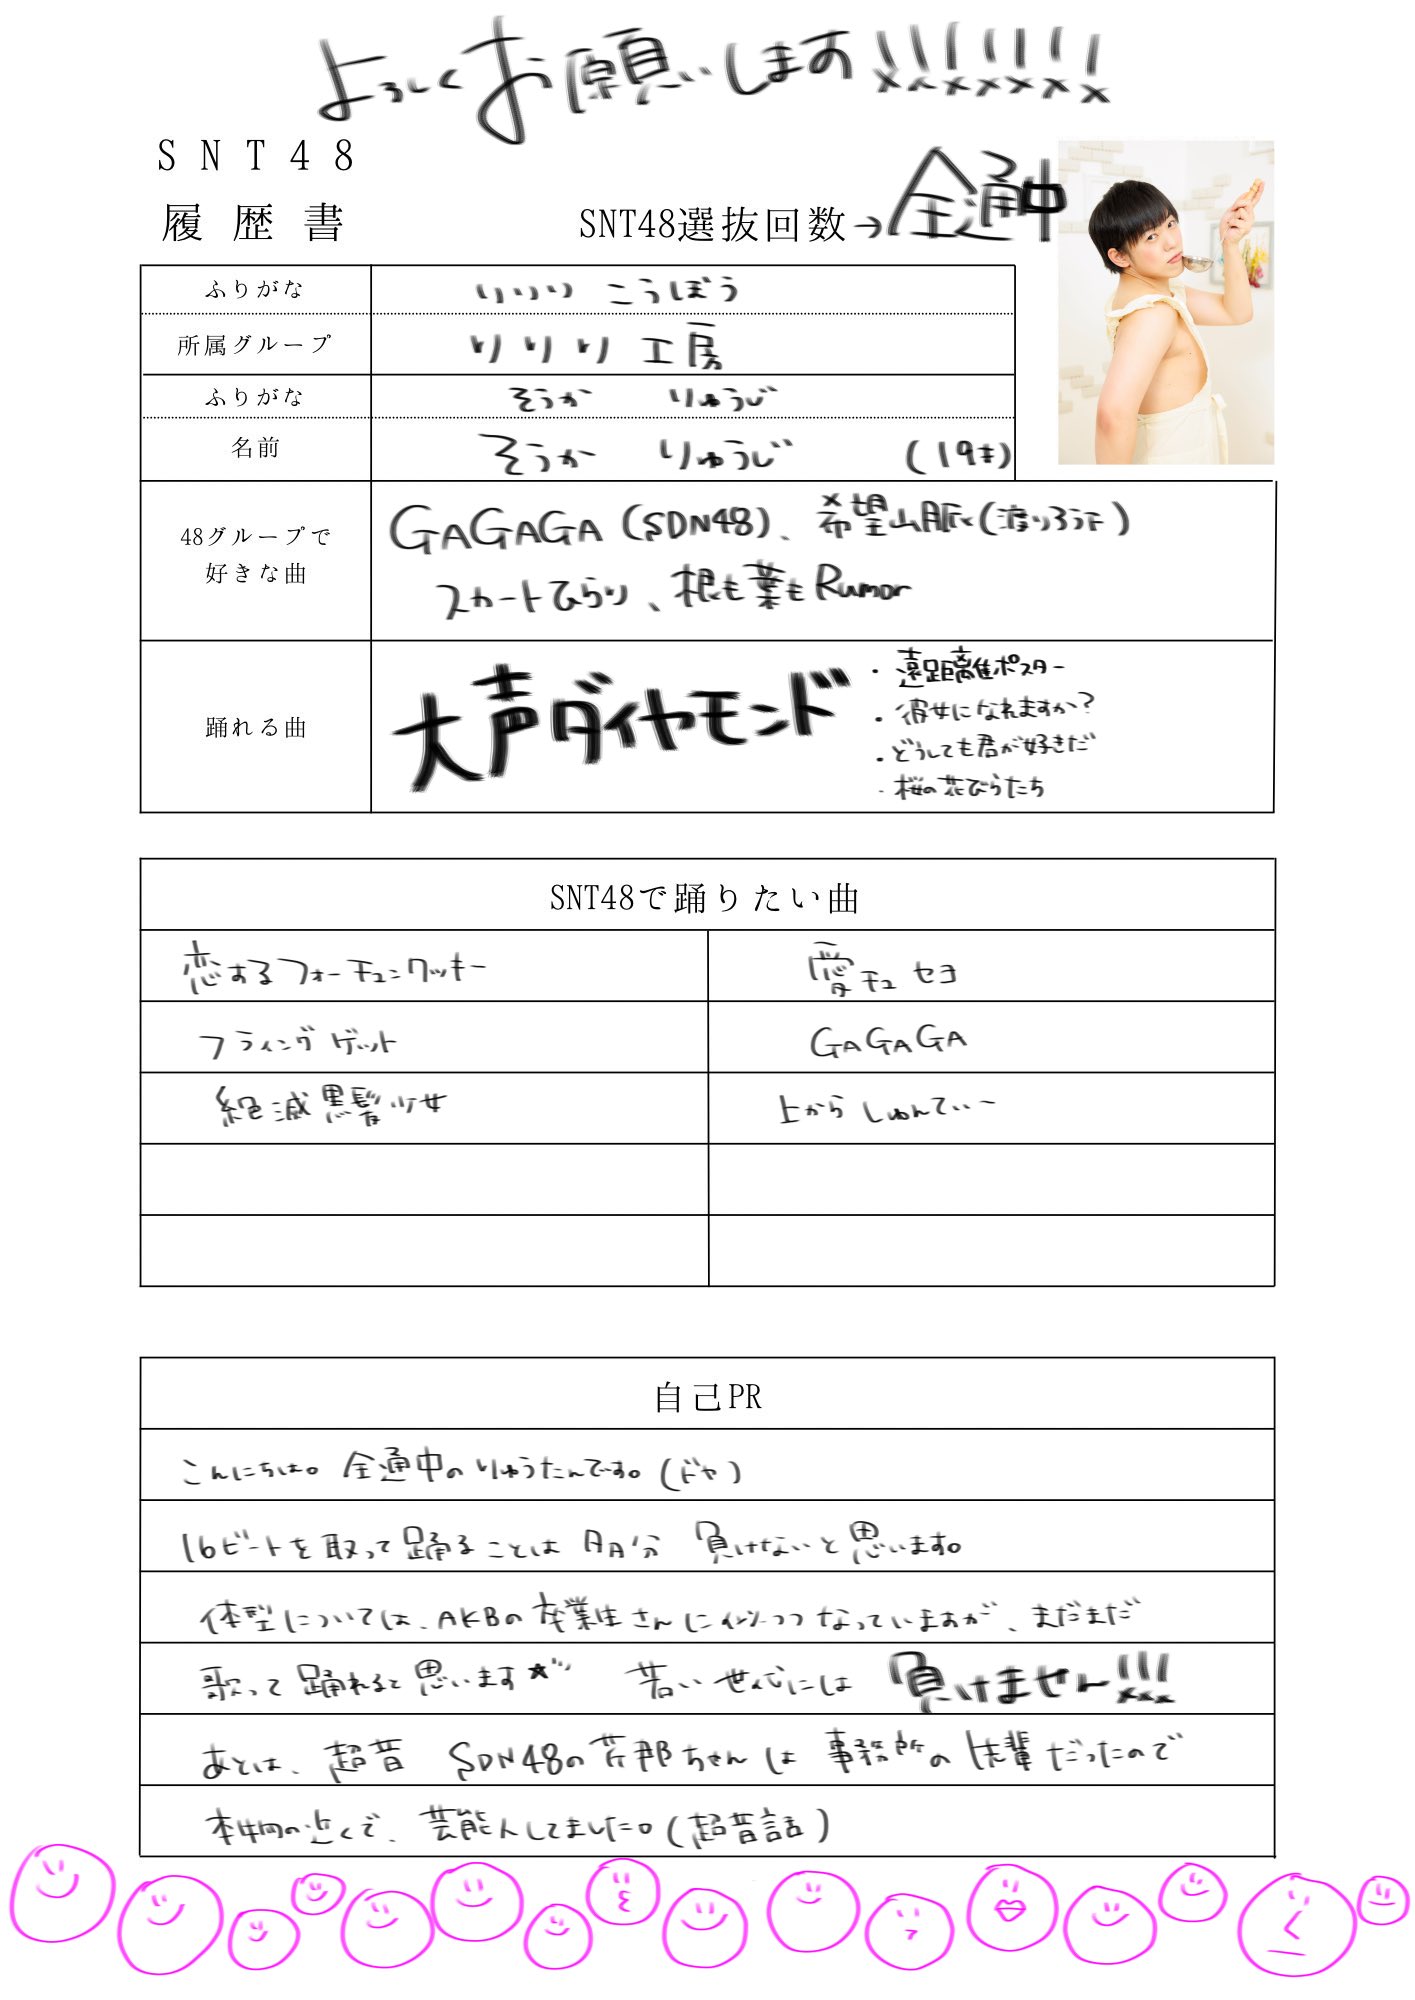 よろしくお願いします!!!!!!!
SNT48
履歴書
SNT48選抜回数→全通中
ふりがな りりり こうぼう
所属グループ りりり 工房
ふりがな そうか りゅうじ
名前 そうか りゅうじ (19才)
48グループで好きな曲
GAGAGA (SDN48)、希望山脈(渡りろうか)
スカートひらり、根も葉もRumor
踊れる曲
大声ダイヤモンド
・遠距離ポスター
・彼女になれますか?
・どうしても君が好きだ
・桜の花びらたち
SNT48で踊りたい曲
恋するフォーチュンクッキー 愛チュセヨ
フライングゲット GAGAGA
絶滅黒髪少女 上からしゅんてぃー
自己PR
こんにちは。全通中のりゅうたんです。(ドヤ)
16ビートを取って踊ることは 自分 負けないと思います。
体型については、AKBの卒業生さんに似つつなっていますが、まだまだ
歌って踊れると思います★ 若い世代には 負けません!!!
あとは、超昔 SDN48の芹那ちゃんは 事務所の先輩だったので
本物の近くで、芸能人してました。(超昔話)